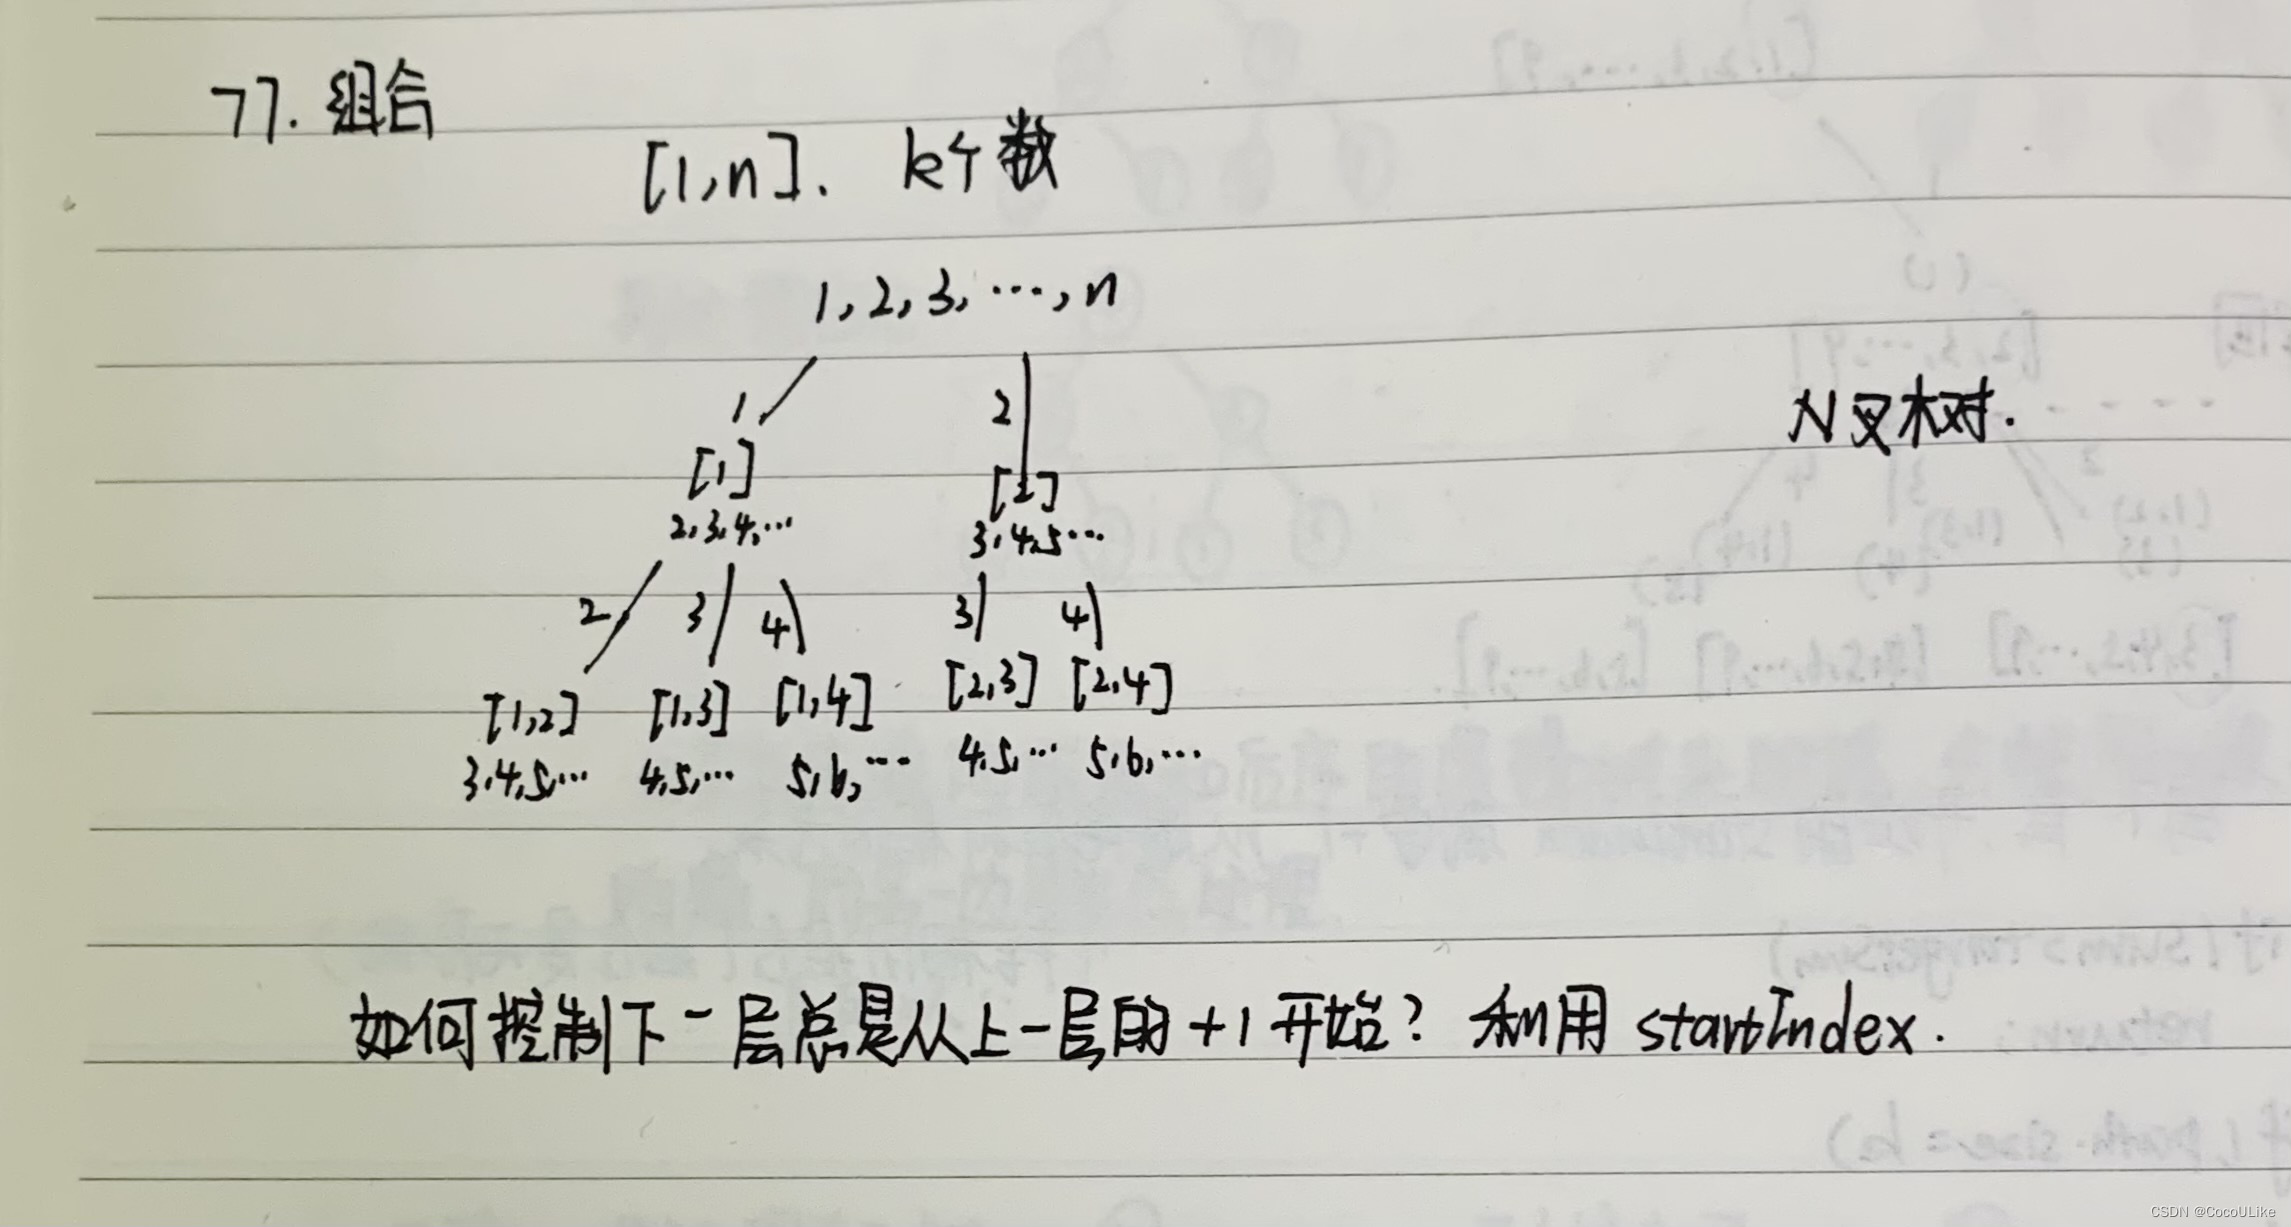 77. 组合
[1,n]. k个数
1,2,3,…,n
N叉树.
1 2
[1] [2]
2,3,4,… 3,4,5…
2 3 4 3 4
[1,2] [1,3] [1,4] [2,3] [2,4]
3,4,5,… 4,5,… 5,6,… 4,5,… 5,6,…
如何控制下一层总是从上一层的+1开始? 利用 startIndex.
CSDN @CocoULike